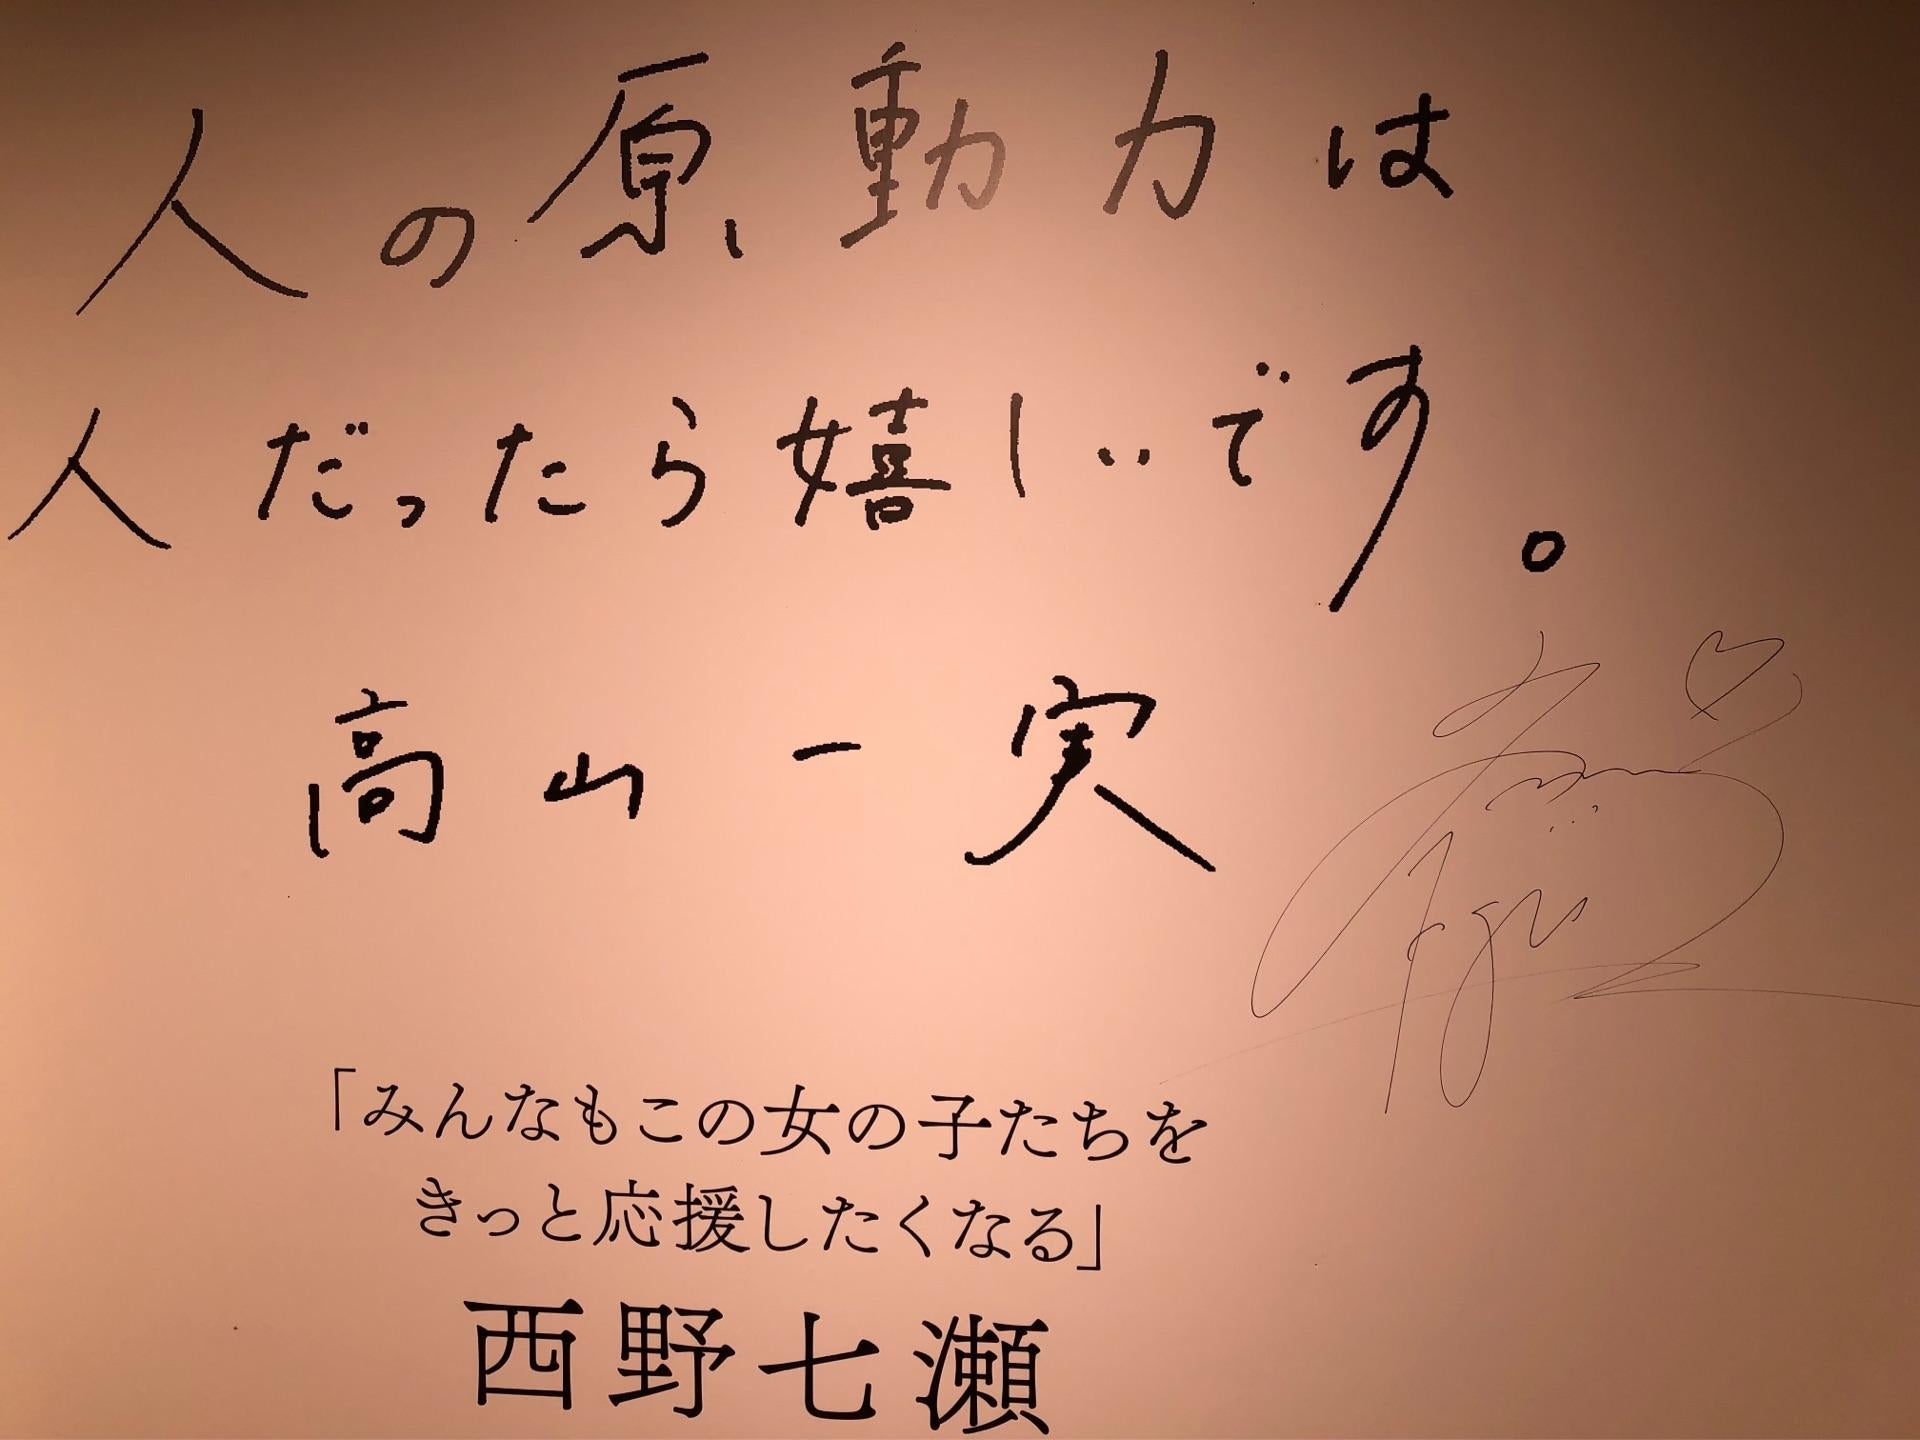 人の原動力は
人だったら嬉しいです。
高山一実
「みんなもこの女の子たちを
きっと応援したくなる」
西野七瀬